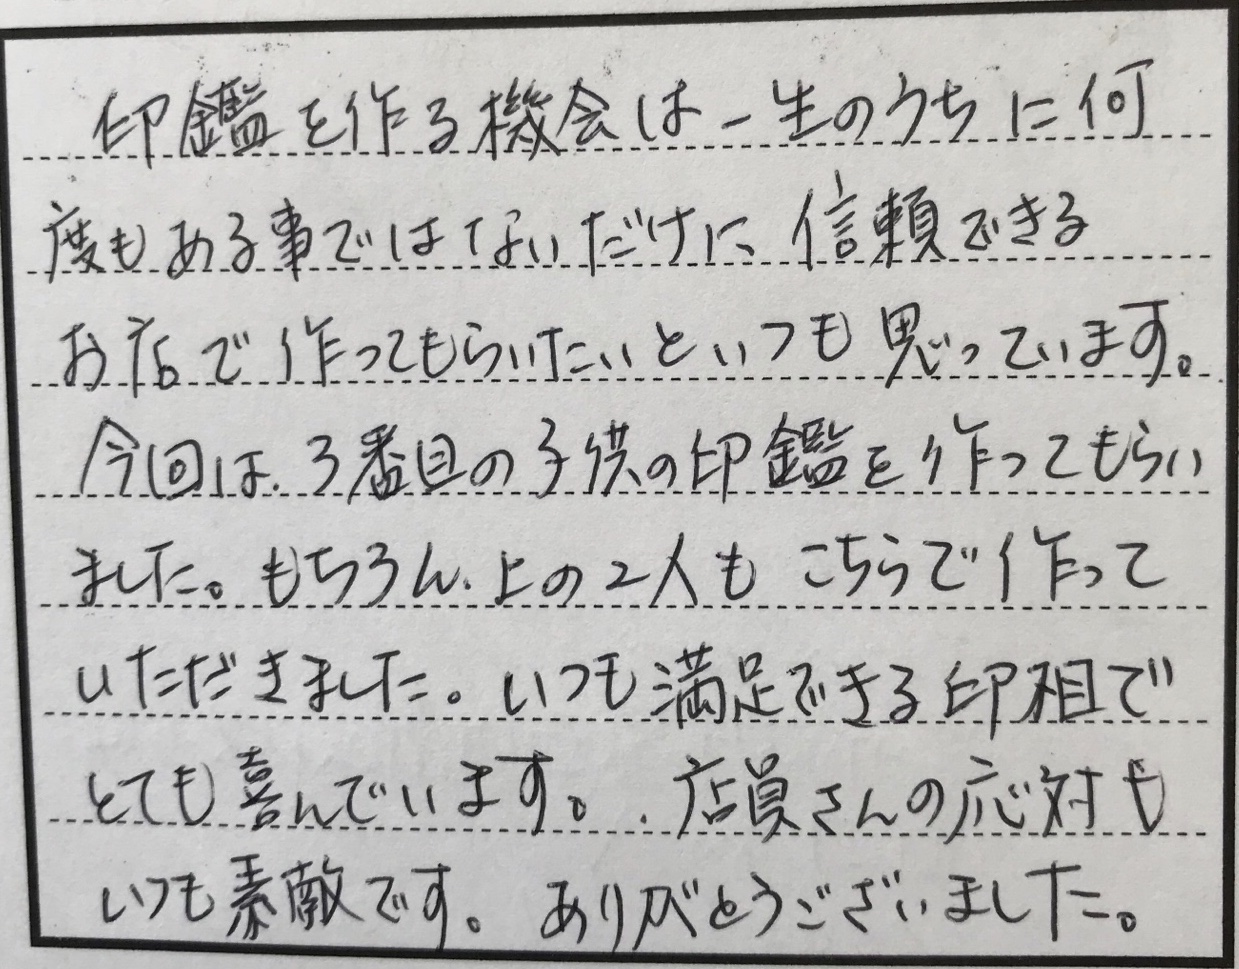 印鑑を作る機会は一生のうちに何
度もある事ではないだけに、信頼できる
お店で作ってもらいたいといつも思っています。
今回は、3番目の子供の印鑑を作ってもらい
ました。もちろん、上の2人もこちらで作って
いただきました。いつも満足できる印相で
とても喜んでいます。店員さんの応対も
いつも素敵です。ありがとうございました。